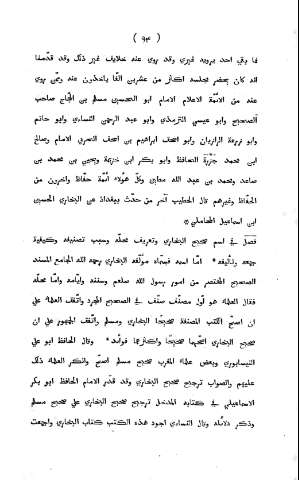 ( ٩٣ )
فما بقي احد يرويه غيري وقد روي عنه خلايف غير ذلك وقد قدّمنا
انه كان يحضر مجلسه اكثر من عشرين الفًا ياخذون عنه وممّن روي
عنه من الائمّة الاعلام الامام ابو الحسين مسلم بن الحجّاج صاحب
الصحيح وابو عيسي الترمذي وابو عبد الرحمن النساوي وابو حاتم
وابو زرعة الرازيان وابو اسحق ابراهيم بن اسحق الحربي الامام وصالح
ابن محمد جَزَرة الحافظ وابو بكر ابن خزيمة ويحيي بن محمد بن
صاعد ومحمد بن عبد الله مطين وكل هولاء ائمّة حفّاظ واخرين من
الحفّاظ وغيرهم قال الخطيب آخر من حدّث ببغداذ عن البخاري الحسين
ابن اسماعيل المحاملي ۞
فصل في اسم صحيح البخاري وتعريف محلّه وسبب تصنيفه وكيفية
جمعه وتأليفه ۞ امّا اسمه فسمّاه مولّفه البخاري رحمه الله الجامع المسند
الصحيح المختصر من امور رسول الله صلعم وسننه وايّامه وامّا محلّه
فقال العلماء هو اوّل مصنّف صنّف في الصحيح المجرّد واتّفق العلماء علي
ان اصحّ الكتب المصنّفة صحيحا البخاري ومسلم واتّفق الجمهور علي ان
صحيح البخاري اصحّهما صحيحًا واكثرهما فوائد ۞ وقال الحافظ ابو علي
النيسابوري وبعض علماء المغرب صحيح مسلم اصحّ وانكر العلماء ذلك
عليهم والصواب ترجيح صحيح البخاري وقد قدّر الامام الحافظ ابو بكر
الاسماعيلي في كتابه المدخل ترجيح صحيح البخاري علي صحيح مسلم
وذكر دلائله وقال النساوي اجود هذه الكتب كتاب البخاري واجمعت